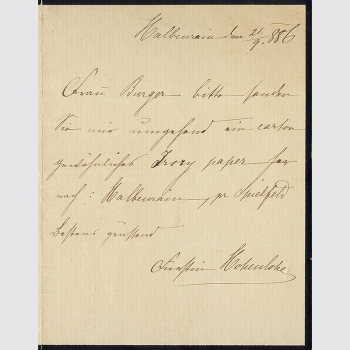 Halbenrain den 21/9. 886
Frau Burger bitte senden
Sie mir umgehend ein carton
gewöhnliches Ivory paper her
nach : Halbenrain, pr Spielfeld
Bestens grüssend
Fürstin Hohenlohe